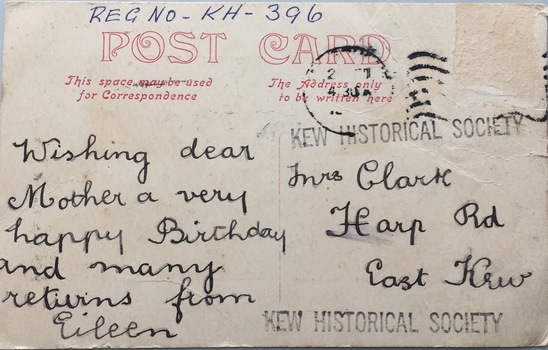 REG NO - KH - 396
POST CARD
This space may be used
for Correspondence
The Address only
to be written here
KEW HISTORICAL SOCIETY
Wishing dear
Mother a very
happy Birthday
and many
returns from
Eileen
Mrs Clark
Harp Rd
East Kew
KEW HISTORICAL SOCIETY